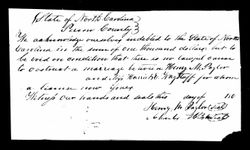 State of North Carolina
Person County
We acknowledge ourselves indebted to the State of North
Carolina in the sum of one thousand dollars but to
be void on condition that there is no lawful cause
to obstruct a marriage between Henry M.
and Miss Harriet for whom
a license now
Witness our hands and seals this day of 18
Henry M.
Charles